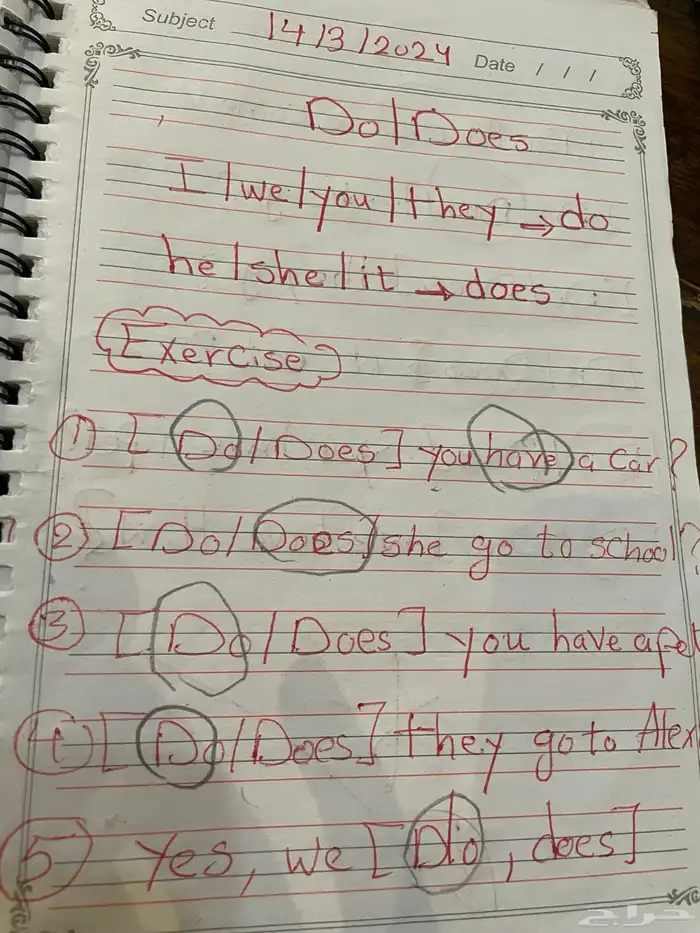 Subject 14/3/2024 Date / / /
Do/Does
I/we/you/they → do
he/she/it → does
Exercise
① [Do/Does] you have a car?
② [Do/Does] she go to school?
③ [Do/Does] you have a pet
④ [Do/Does] they go to Alex
⑤ Yes, we [Do, does]
حراج